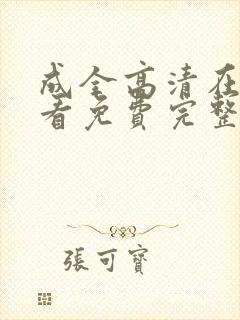 成全高清在
看免费完整
張可寶